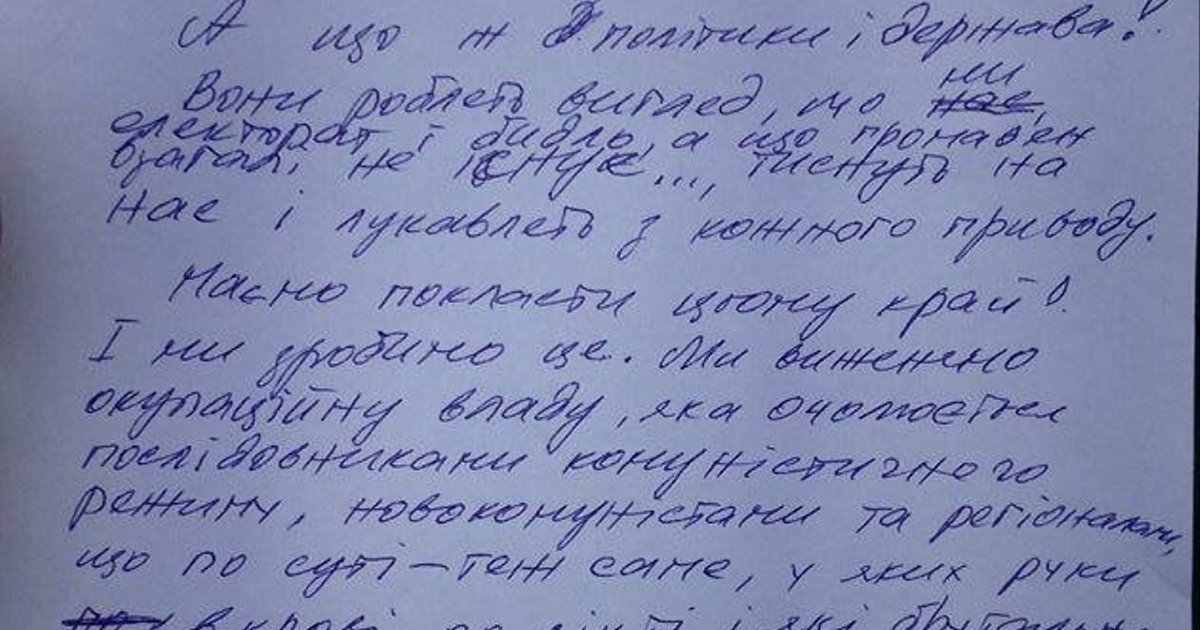 А що ж політики і держава!
Вони роблять вигляд, що ми
електорат і бидло, а що
взагалі не існує..., тиснуть на
нас і лукавлять з кожного приводу.
Маємо покласти цьому край!
І ми зробимо це. Ми виженемо
окупаційну владу, яка очолюється
послідовниками комуністичного
режиму, новокомуністами та регіоналами,
що по суті – теж саме, у яких руки
в крові до і які